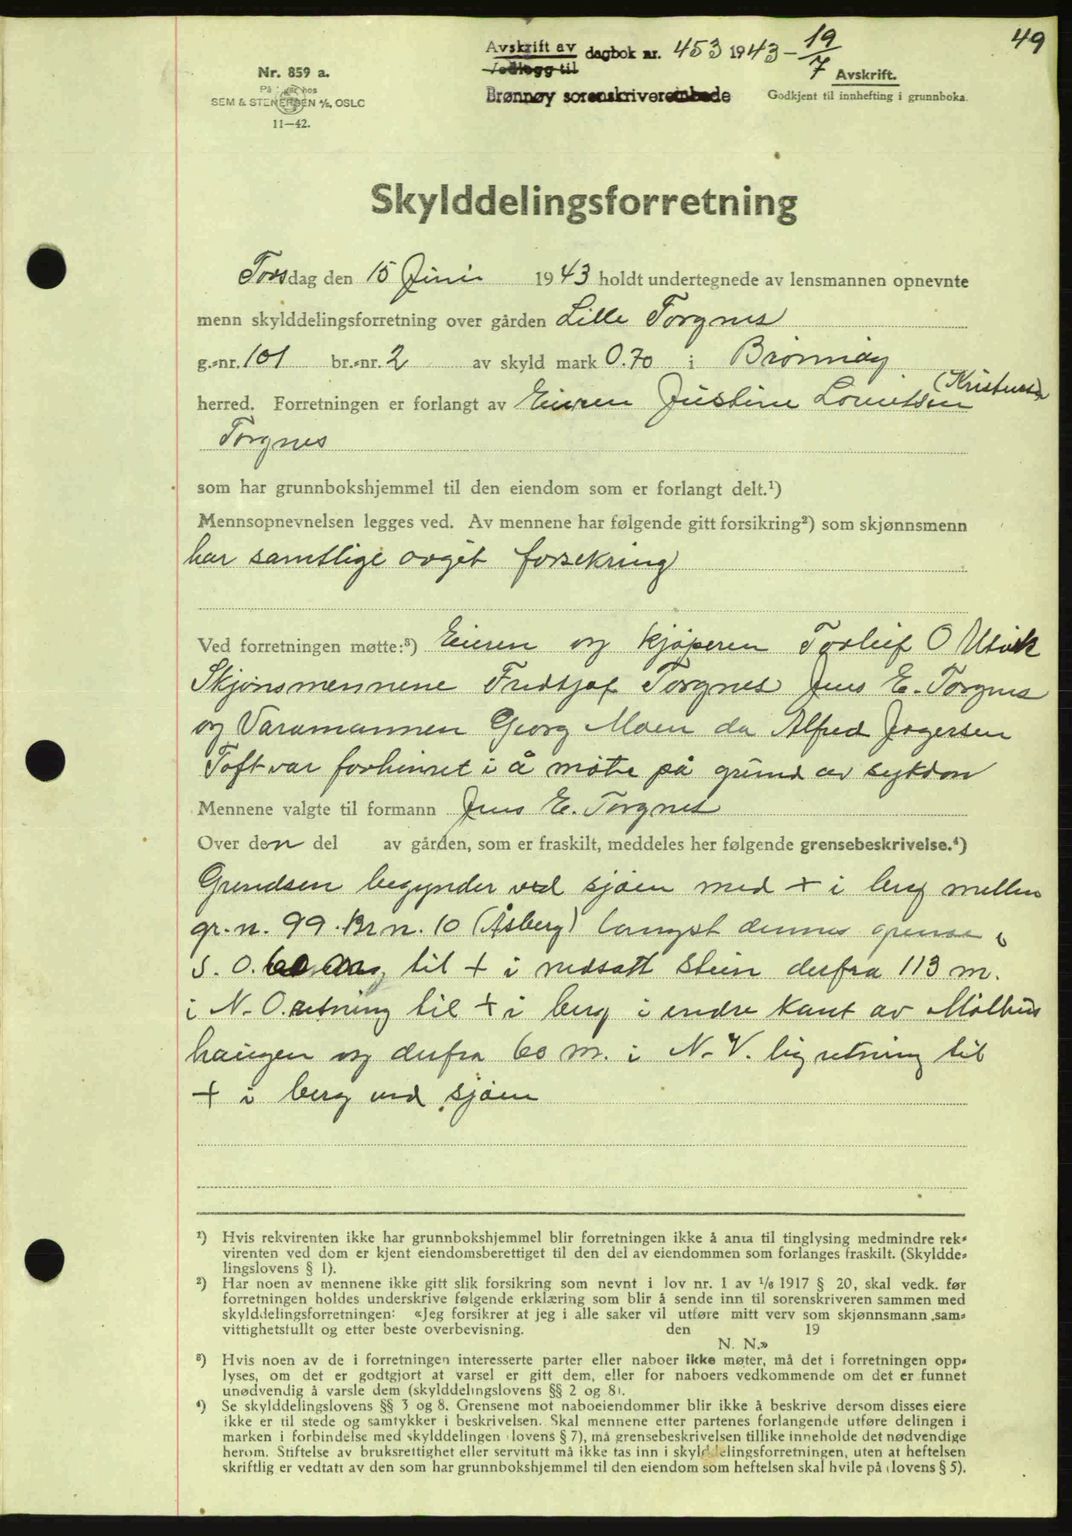 49
Avskrift av
Vedlegg til
dagbok nr. 453 1943 - 19/7
Brønnøy sorenskriverembede
Avskrift.
Godkjent til innhefting i grunnboka.
Nr. 859 a.
På lager hos
SEM & STENERSEN A/S, OSLO
11—42.
Skylddelingsforretning
Torsdag den 15 Juni 1943 holdt undertegnede av lensmannen opnevnte
menn skylddelingsforretning over gården Lille Torgnes
g.-nr. 101 br.-nr. 2 av skyld mark 0.70 i Brønnøy
herred. Forretningen er forlangt av Eieren Justine Lornitsen (Kristensen)
Torgnes
som har grunnbokshjemmel til den eiendom som er forlangt delt.¹)
Mennsopnevnelsen legges ved. Av mennene har følgende gitt forsikring²) som skjønnsmenn
har samtlige avgit forsekring
Ved forretningen møtte:³) Eieren og kjøperen Torleif O Utvik
Skjønsmennene Fredtjof Torgnes Jens E. Torgnes
og Varamannen Georg Moen da Alfred Jørgersen
Toft var forhinret i å møte på grund av sykdom
Mennene valgte til formann Jens E. Torgnes
Over den del av gården, som er fraskilt, meddeles her følgende grensebeskrivelse.⁴)
Grendsen begynder ved sjøen med + i berg mellem
gr.n. 99 Br n. 10 (Åsberg) langst dennes grense i
S.O. til + i nedsatt stein derfra 113 m.
i N-O. retning til + i berg i endre kant av Mølhus
haugen og derfra 60 m. i N-V. lig retning til
+ i berg ved sjøen
¹) Hvis rekvirenten ikke har grunnbokshjemmel blir forretningen ikke å anta til tinglysing medmindre rek-
virenten ved dom er kjent eiendomsberettiget til den del av eiendommen som forlanges fraskilt. (Skyldde-
lingslovens § 1).
²) Har noen av mennene ikke gitt slik forsikring som nevnt i lov nr. 1 av 1/6 1917 § 20, skal vedk. før
forretningen holdes underskrive følgende erklæring som blir å sende inn til sorenskriveren sammen med
skylddelingsforretningen: «Jeg forsikrer at jeg i alle saker vil utføre mitt verv som skjønnsmann sam-
vittighetsfullt og etter beste overbevisning. den 19
N. N.»
³) Hvis noen av de i forretningen interesserte parter eller naboer ikke møter, må det i forretningen opp-
lyses, om det er godtgjort at varsel er gitt dem, eller for naboers vedkommende om det er funnet
unødvendig å varsle dem (skylddelingslovens §§ 2 og 8).
⁴) Se skylddelingslovens §§ 3 og 8. Grensene mot naboeiendommer blir ikke å beskrive dersom disses eiere
ikke er til stede og samtykker i beskrivelsen. Skal mennene etter partenes forlangende utføre delingen i
marken i forbindelse med skylddelingen (lovens § 7), må grensebeskrivelsen tillike inneholde det nødvendige
herom. Stiftelse av bruksrettighet eller servitutt må ikke tas inn i skylddelingsforretningen, uten at heftelsen
skriftlig er vedtatt av den som har grunnbokshjemmel til den eiendom som heftelsen skal hvile på (lovens § 5).